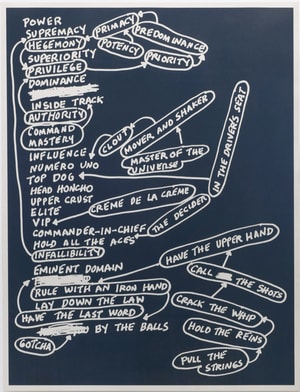 POWER
SUPREMACY
PRIMACY
HEGEMONY
PREDOMINANCE
POTENCY
SUPERIORITY
PRIORITY
PRIVILEGE
DOMINANCE
INSIDE TRACK
AUTHORITY
COMMAND
MASTERY
CLOUT
MOVER AND SHAKER
INFLUENCE
MASTER OF THE
UNIVERSE
NUMERO UNO
TOP DOG
IN THE DRIVER'S SEAT
HEAD HONCHO
UPPER CRUST
CRÈME DE LA CRÈME
ELITE
VIP
THE DECIDER
COMMANDER-IN-CHIEF
HOLD ALL THE ACES
INFALLIBILITY
HAVE THE UPPER HAND
EMINENT DOMAIN
CALL THE SHOTS
RULE WITH AN IRON HAND
LAY DOWN THE LAW
CRACK THE WHIP
HAVE THE LAST WORD
HOLD THE REINS
BY THE BALLS
GOTCHA
PULL THE
STRINGS